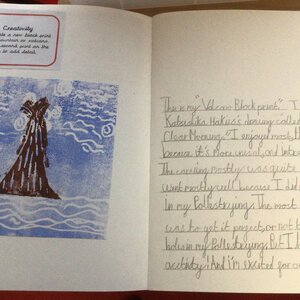 Creativity
a new block print
mountain or volcano.
second print on the
to add detail.
This is my "Volcano Block print". I
Katsushika Hokusi's drawing called
Clear Morning." I enjoyed most,
because it's more unusual, and
The carving mostly was quite
went mostly well because I did
in my Pollestrying. The most
was to get it perfect, or not
holes in my Pollestrying. But I
activity! And I'm excited for